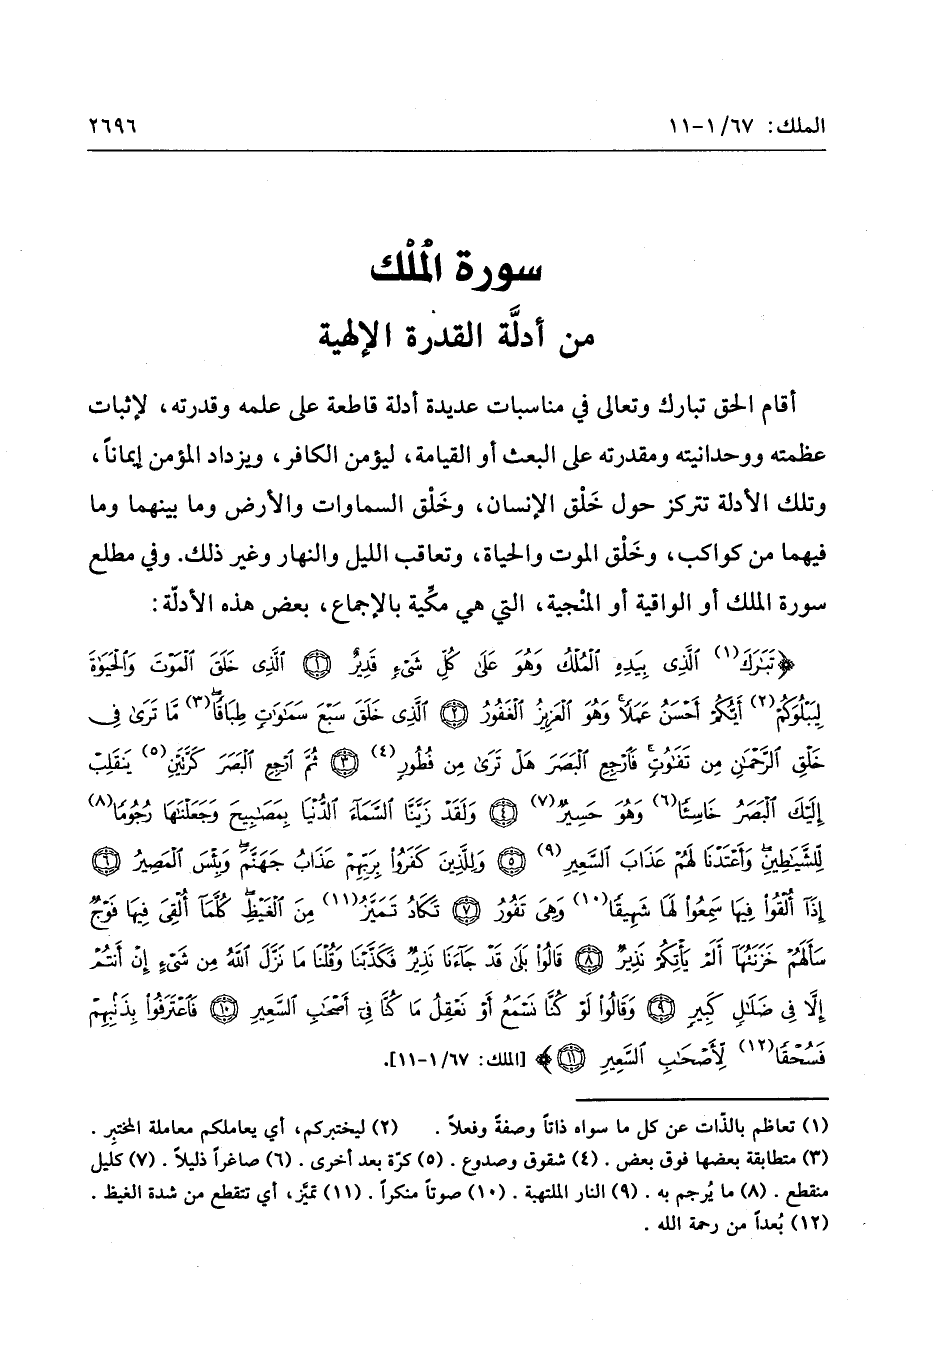 الملك: ٦٧/ ١-١١ ٢٦٩٦
سورة الْمُلْك
من أدلَّة القدرة الإلهية
أقام الحق تبارك وتعالى في مناسبات عديدة أدلة قاطعة على علمه وقدرته، لإثبات
عظمته ووحدانيته ومقدرته على البعث أو القيامة، ليؤمن الكافر، ويزداد المؤمن إيماناً،
وتلك الأدلة تتركز حول خَلْق الإنسان، وخَلْق السماوات والأرض وما بينهما وما
فيهما من كواكب، وخَلْق الموت والحياة، وتعاقب الليل والنهار وغير ذلك. وفي مطلع
سورة الملك أو الواقية أو المنْجية، التي هي مكِّية بالإجماع، بعض هذه الأدلّة:
﴿تَبَٰرَكَ(١) ٱلَّذِى بِيَدِهِ ٱلْمُلْكُ وَهُوَ عَلَىٰ كُلِّ شَىْءٍ قَدِيرٌ ١ ٱلَّذِى خَلَقَ ٱلْمَوْتَ وَٱلْحَيَوٰةَ
لِيَبْلُوَكُمْ(٢) أَيُّكُمْ أَحْسَنُ عَمَلًا ۚ وَهُوَ ٱلْعَزِيزُ ٱلْغَفُورُ ٢ ٱلَّذِى خَلَقَ سَبْعَ سَمَٰوَٰتٍ طِبَاقًا ۖ(٣) مَّا تَرَىٰ فِى
خَلْقِ ٱلرَّحْمَٰنِ مِن تَفَٰوُتٍ ۖ فَٱرْجِعِ ٱلْبَصَرَ هَلْ تَرَىٰ مِن فُطُورٍ(٤) ٣ ثُمَّ ٱرْجِعِ ٱلْبَصَرَ كَرَّتَيْنِ(٥) يَنقَلِبْ
إِلَيْكَ ٱلْبَصَرُ خَاسِئًا(٦) وَهُوَ حَسِيرٌ(٧) ٤ وَلَقَدْ زَيَّنَّا ٱلسَّمَآءَ ٱلدُّنْيَا بِمَصَٰبِيحَ وَجَعَلْنَٰهَا رُجُومًا(٨)
لِّلشَّيَٰطِينِ ۖ وَأَعْتَدْنَا لَهُمْ عَذَابَ ٱلسَّعِيرِ(٩) ٥ وَلِلَّذِينَ كَفَرُوا۟ بِرَبِّهِمْ عَذَابُ جَهَنَّمَ ۖ وَبِئْسَ ٱلْمَصِيرُ ٦
إِذَآ أُلْقُوا۟ فِيهَا سَمِعُوا۟ لَهَا شَهِيقًا(١٠) وَهِىَ تَفُورُ ٧ تَكَادُ تَمَيَّزُ(١١) مِنَ ٱلْغَيْظِ ۖ كُلَّمَآ أُلْقِىَ فِيهَا فَوْجٌ
سَأَلَهُمْ خَزَنَتُهَآ أَلَمْ يَأْتِكُمْ نَذِيرٌ ٨ قَالُوا۟ بَلَىٰ قَدْ جَآءَنَا نَذِيرٌ فَكَذَّبْنَا وَقُلْنَا مَا نَزَّلَ ٱللَّهُ مِن شَىْءٍ إِنْ أَنتُمْ
إِلَّا فِى ضَلَٰلٍ كَبِيرٍ ٩ وَقَالُوا۟ لَوْ كُنَّا نَسْمَعُ أَوْ نَعْقِلُ مَا كُنَّا فِىٓ أَصْحَٰبِ ٱلسَّعِيرِ ١٠ فَٱعْتَرَفُوا۟ بِذَنۢبِهِمْ
فَسُحْقًا(١٢) لِّأَصْحَٰبِ ٱلسَّعِيرِ ١١﴾ [الملك: ٦٧/ ١-١١].
(١) تعاظم بالذّات عن كل ما سواه ذاتاً وصفةً وفعلاً. (٢) ليختبركم، أي يعاملكم معاملة المختبِر.
(٣) متطابقة بعضها فوق بعض. (٤) شقوق وصدوع. (٥) كرّة بعد أخرى. (٦) صاغراً ذليلاً. (٧) كليل
منقطع. (٨) ما يُرجم به. (٩) النار الملتهبة. (١٠) صوتاً منكراً. (١١) تميَّز، أي تتقطع من شدة الغيظ.
(١٢) بُعداً من رحمة الله.